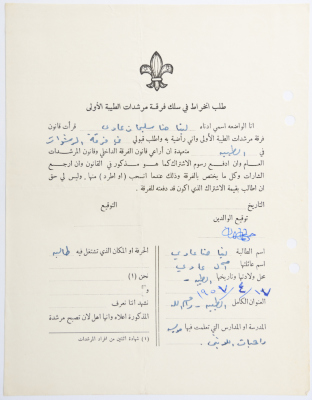 طلب انخراط في سلك فرقة مرشدات الطيبة الأولى
انا الواضعه اسمي ادناه لينا حنا سليمان عادي قرأت قانون
فرقة مرشدات الطيبة الأولى واني راغبة به واطلب قبولي في فرقة المرشدات
في الطيبه متعهدة ان أراعي قانون الفرقة الداخلي وقانون المرشدات
العام وان ادفع رسوم الاشتراك كما هو مذكور في القانون وان ارجع
الشارات وكل ما يختص بالفرقة وذلك عندما انسحب (او اطرد) منها، وليس لي حق
ان اطالب بقيمة الاشتراك الذي اكون قد دفعته للفرقة.
التاريخ
التوقيع
توقيع الوالدين
اسم الطالبة لينا حنا عادي
اسم عائلتها عادي
محل ولادتها وتاريخها الطيبه
١٧ / ٤ / ١٩٥٧
العنوان الكامل الطيبه - رام الله
المدرسة او المدارس التي تعلمت فيها
راهبات اللاتين
الحرفة او المكان الذي تشتغل فيه طالبه
نحن (١)
و٢
نشهد اننا نعرف
المذكورة اعلاه وانها اهل لان تصبح مرشدة
(١) شهادة اثنين من افراد المرشدات